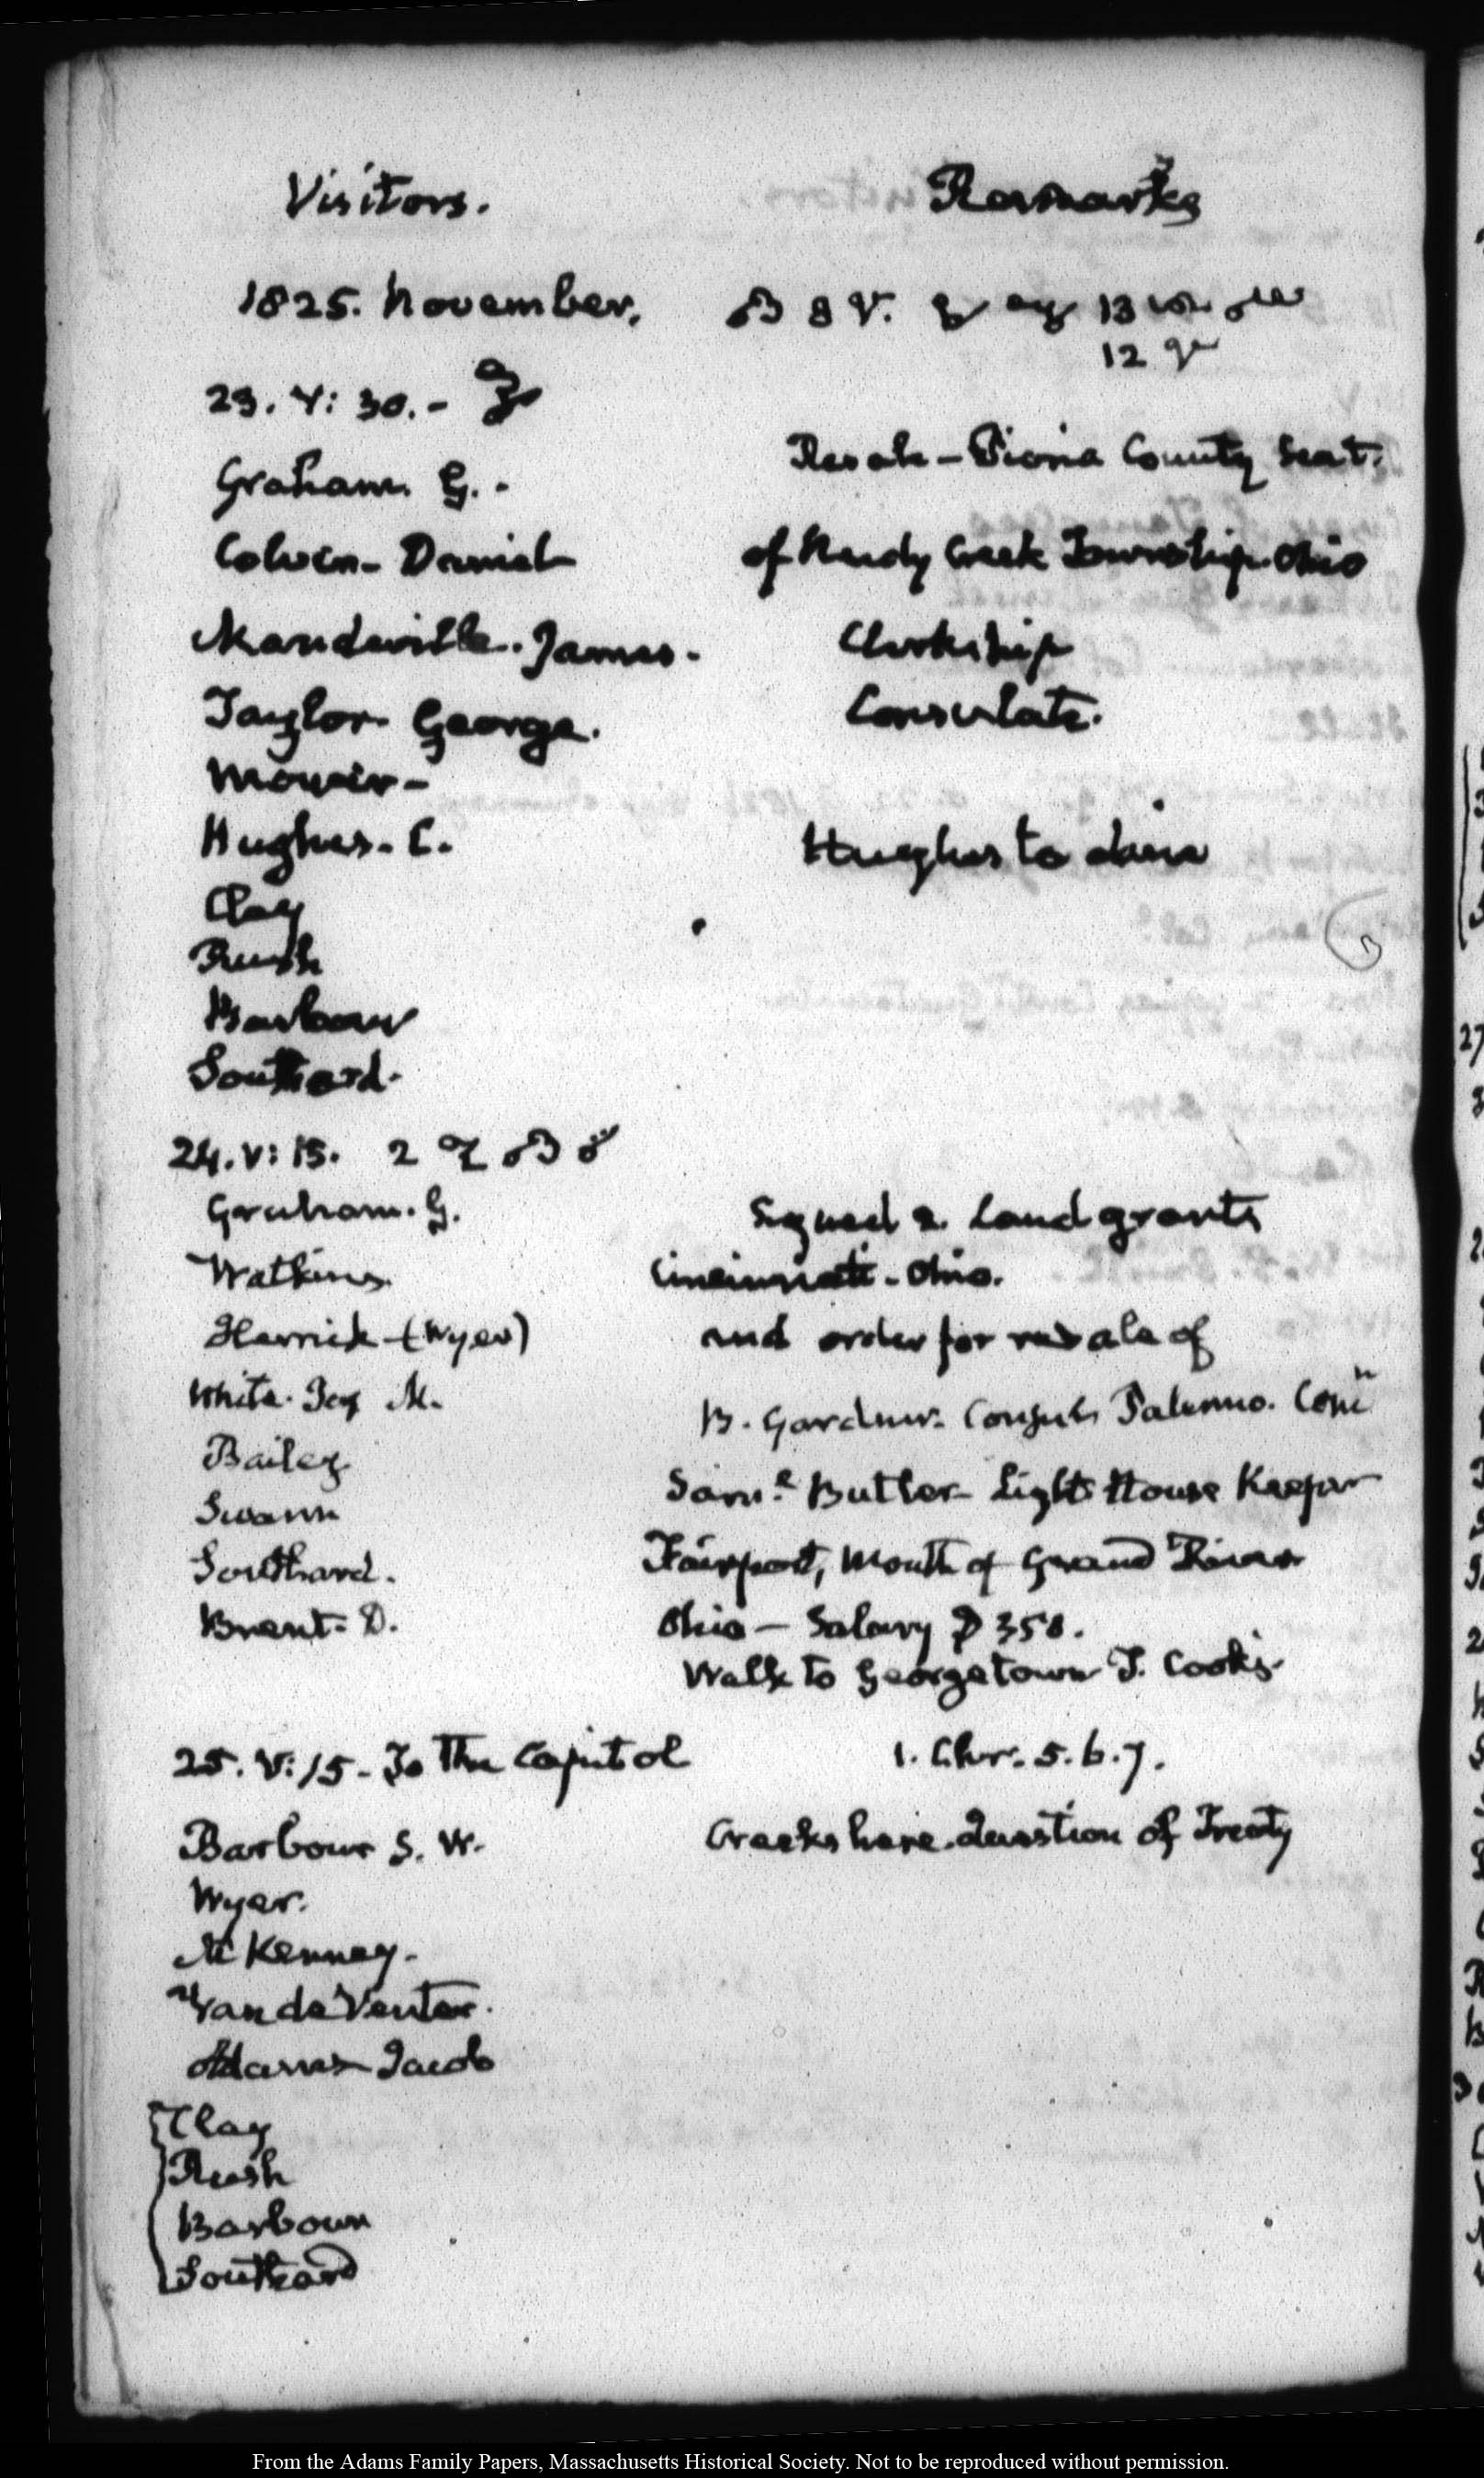 Visitors.
Remarks
1825. November.
13
12
23. V: 30.-
Graham. G.-
Resale - County Seat.
Colvin- Daniel
of Creek Township. Ohio
Mandeville. James.
Clerkship
Taylor George.
Consulate.
Mower-
Hughes. C.
Hughes to dine
Clay
Rush
Barbour
Southard.
24. V: 15. 2
Graham. G.
Signed 2. Land grants
Watkins.
Cincinnati - Ohio.
Herrick - (Wyer)
and order for resale of
White. Jos M.
B. Gardner. Consul, Palermo.
Bailey.
Saml. Butler- Light House Keeper
Swann
Southard.
Fairport, Mouth of Grand River
Brent- D.
Ohio - Salary D 350.
Walk to Georgetown J. Cook's.
25. V: 15- To the Capitol
1. Chr: 5. 6. 7.
Barbour S. W.
Creeks here. Question of Treaty
Wyer.
McKenney.
Van de Venter.
Adams Jacob
Clay
Rush
Barbour
Southard
From the Adams Family Papers, Massachusetts Historical Society. Not to be reproduced without permission.